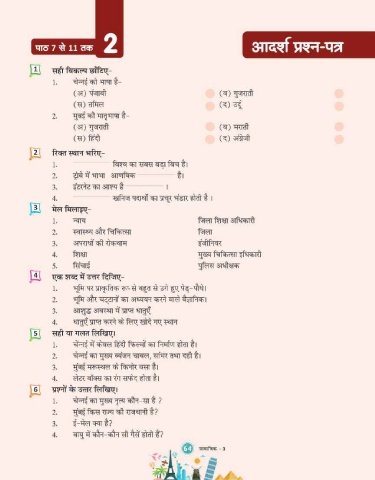 पाठ 7 से 11 तक 2
आदर्श प्रश्न-पत्र
1 सही विकल्प छाँटिए–
1. चेन्नई की भाषा है–
(अ) पंजाबी (ब) गुजराती
(स) तमिल (द) उर्दू
2. मुंबई की मातृभाषा है–
(अ) गुजराती (ब) मराठी
(स) हिंदी (द) अंग्रेजी
2 रिक्त स्थान भरिए–
1. विश्व का सबसे बड़ा चित्र है।
2. ट्रांबे में भाभा आणविक है।
3. इंटरनेट का आश्य है ।
4. खनिज पदार्थों का प्रचुर भंडार होती है ।
3 मेल मिलाइए–
1. न्याय जिला शिक्षा अधिकारी
2. स्वास्थ्य और चिकित्सा जिला
3. अपराधों की रोकथाम इंजीनियर
4. शिक्षा मुख्य चिकित्सा इधिकारी
5. सिंचाई पुलिस अधीक्षक
4 एक शब्द में उत्तर दिजिए–
1. भूमि पर प्राकृतिक रूप से बहुत से उगे हुए पेड़-पौधे।
2. भूमि और चट्टानों का अध्ययन करने वाले वैज्ञानिक।
3. आशुद्ध अवस्था में प्राप्त धातुएँ
4. धातुएँ प्राप्त करने के लिए खोदे गए स्थान
5 सही या गलत लिखिए।
1. चेन्नई में केवल हिंदी फिल्मों का निर्माण होता है।
2. चेन्नई का मुख्य व्यंजन चावल, सांभर तथा दही है।
3. मुंबई मरूस्थल के किनारे बसा है।
4. लेटर बॉक्स का रंग सफेद होता है।
6 प्रश्नों के उत्तर लिखिए।
1. चेन्नई का मुख्य नृत्य कौन-सा है ?
2. मुंबई किस राज्य की राजधानी है?
3. ई-मेल क्या है?
4. वायु में कौन-कौन सी गैसें होती हैं?
64 सामाजिक - 3